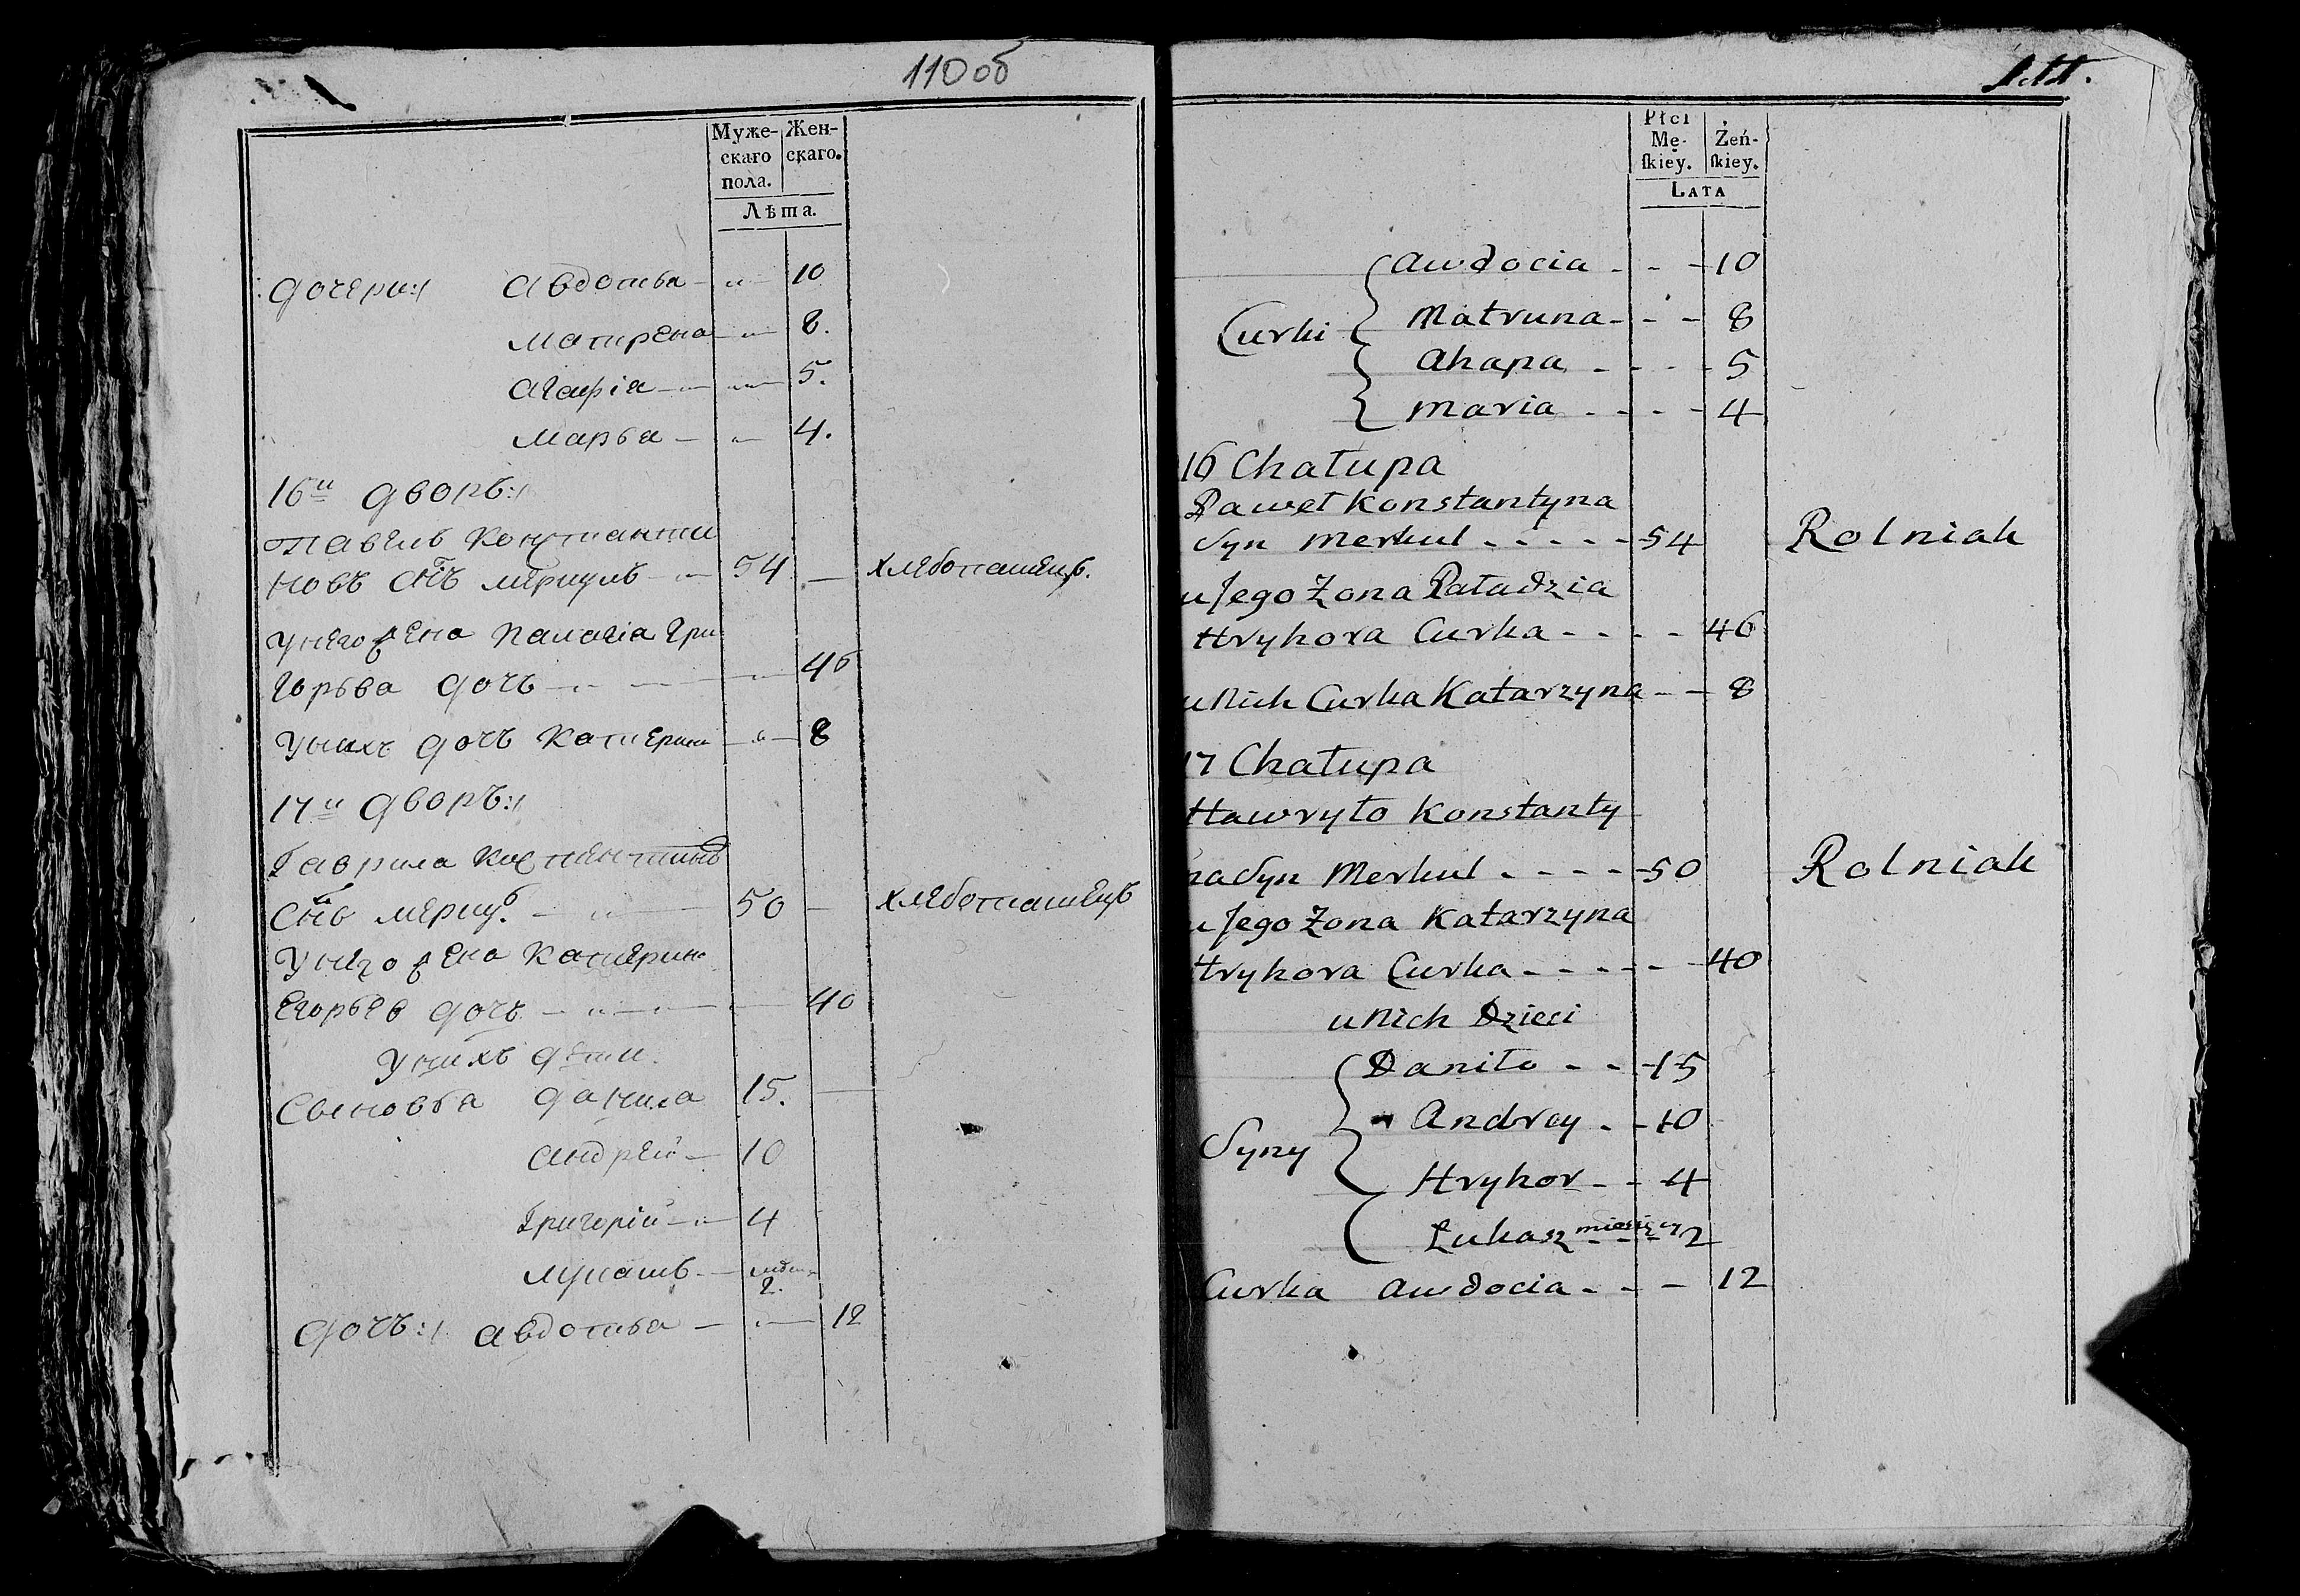 110об
Муже- Жен-
скаго скаго.
пола.
Лѣта.
дочери:/ Авдотьа 10
Матрена 8.
Агафіа 5.
Марьа 4.
16й дворъ:/
Павелъ Константи
новъ снъ Меркулъ 54 хлебопашецъ.
У него жена Палагіа Гри
горьва дочь 46
У нихъ дочь Катерина 8
17й дворъ:/
Гаврила Костентинъ
Снъ Меркуъ. 50 хлебопашецъ
У него жена Катерина
Егорьев дочь 40
У нихъ дѣти.
Сыновьа Данила 15.
Андрей 10
Григорій 4
Лукашъ
2.
дочь:/ Авдотьа 12
Płci
Mę- Żeń-
skiey. skiey.
Lata
Awdocia - - - 10
Curki Matruna - - - 8
Ahapa - - - - 5
Maria - - - - 4
16 Chałupa
Paweł Konstantyna
Syn Merkul - - - - - 54 Rolniak
u Jego Żona Paładzia
Hryhora Curka - - - - 46
u Nich Curka Katarzyna - - 8
17 Chałupa
Hawryło Konstanty
na Syn Merkul - - - - 50 Rolniak
u Jego Żona Katarzyna
Hryhora Curka - - - - - - 40
u Nich Dzieci
Daniło - - 15
Andrey - - 10
Syny
Hryhor - - 4
Łukasz miesięcy 2
Curka Awdocia - - - 12